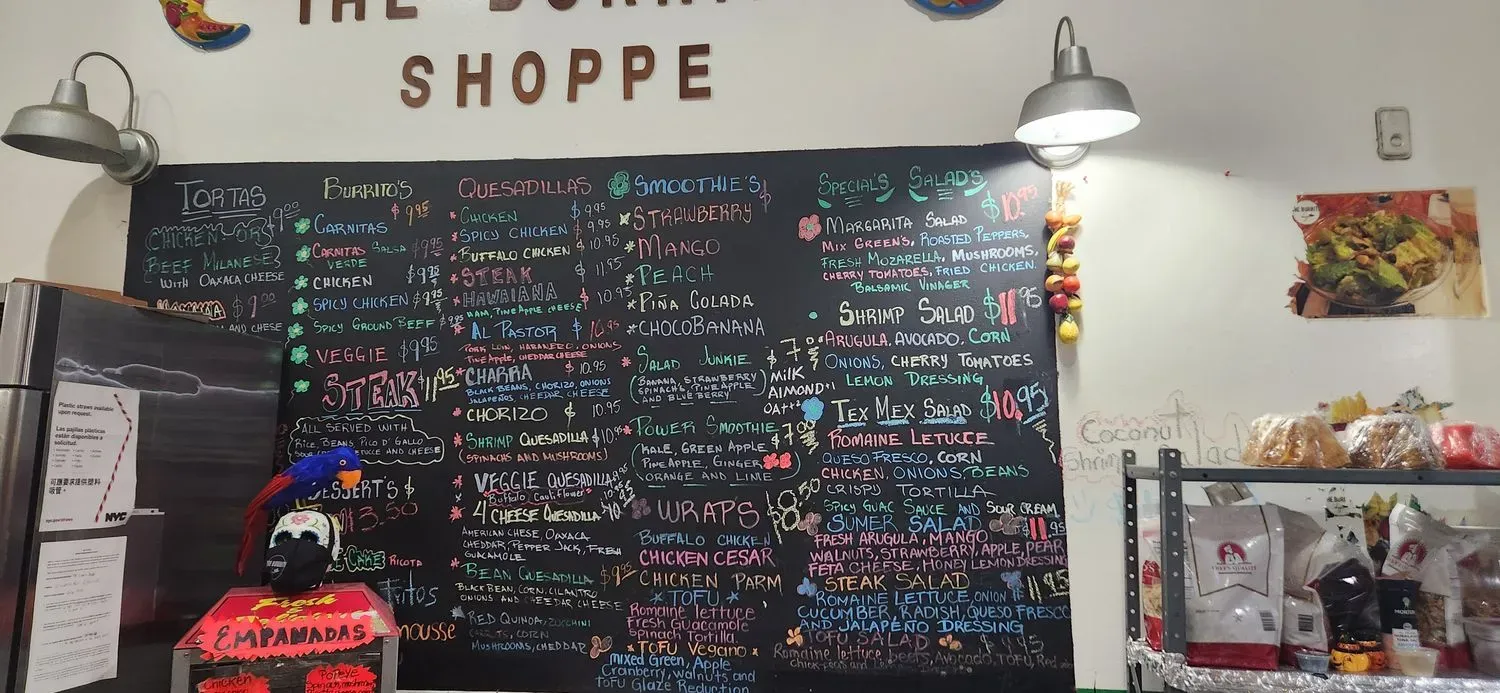 THE
SHOPPE
TORTAS
$9.00
CHICKEN OR
BEEF MILANESE
WITH OAXACA CHEESE
$9.00
AND CHESE
BURRITO'S
$9.95
CARNITAS
CARNITAS SALSA $9.95
VERDE
CHICKEN $9.95
SPICY CHICKEN $9.95
SPICY GROUND BEEF $9.95
VEGGIE $9.95
STEAK $11.95
ALL SERVED WITH
RICE, BEANS, PICO D' GALLO
LETTUCE AND CHEESE
DESSERT'S $
3.50
CAKE RICOTA
mousse
QUESADILLAS
CHICKEN $9.95
SPICY CHICKEN $9.95
BUFFALO CHICKEN $10.95
STEAK $11.95
HAWAIANA $10.95
HAM, PINEAPPLE CHEESE
AL PASTOR $10.95
PORK LOIN, HABANERO, ONIONS
PINEAPPLE, CHEDDAR CHEESE
CHARRA $10.95
BLACK BEANS, CHORIZO, ONIONS
JALAPEÑOS, CHEEDAR CHEESE
CHORIZO $10.95
SHRIMP QUESADILLA $10.95
(SPINACHS AND MUSHROOMS)
VEGGIE QUESADILLA
Buffalo Cauliflower
4 CHEESE QUESADILLA
AMERICAN CHESE, OAXACA
CHEDDAR, PEPPER JACK, FRESH
GUACAMOLE
BEAN QUESADILLA $9.95
BLACK BEAN, CORN, CILANTRO
ONIONS AND CHEEDAR CHEESE
RED QUINOA, ZUCCHINI
CARROTS, CORN
MUSHTROOMS, CHEDDAR
SMOOTHIE'S
STRAWBERRY
MANGO
PEACH
PIÑA COLADA
CHOCOBANANA
SALAD JUNKIE
(BANANA, STRAWBERRY
SPINACHS, PINEAPPLE
AND BLUEBERRY)
MILK
ALMOND
OAT
POWER SMOOTHIE
(KALE, GREEN APPLE
PINEAPPLE, GINGER
ORANGE AND LIME
WRAPS $8.50
BUFFALO CHICKEN
CHICKEN CESAR
CHICKEN PARM
TOFU
Romaine lettuce
Fresh Guacamole
Spinach Tortilla.
TOFU VEGANO
mixed Green, Apple
Cranberry, walnuts and
TOFU Glaze Reduction
SPECIAL'S SALAD'S
MARGARITA SALAD $10.95
MIX GREEN'S, ROASTED PEPPERS,
FRESH MOZARELLA, MUSHROOMS,
CHERRY TOMATOES, FRIED CHICKEN.
BALSAMIC VINAGER
SHRIMP SALAD $11.95
ARUGULA, AVOCADO, CORN
ONIONS, CHERRY TOMATOES
LEMON DRESSING
TEX MEX SALAD $10.95
ROMAINE LETUCCE
QUESO FRESCO, CORN
CHICKEN, ONIONS, BEANS
CRISPY TORTILLA
SPICY GUAC SAUCE AND SOUR CREAM
SUMER SALAD $11.95
FRESH ARUGULA, MANGO
WALNUTS, STRAWBERRY, APPLE, PEAR
FETA CHEESE, HONEY LEMON DRESSING
STEAK SALAD 11.95
ROMAINE LETTUCE, ONION
CUCUMBER, RADISH, QUESO FRESCO
AND JALAPEÑO DRESSING
TOFU SALAD
Romaine lettuce, beets, Avocado, TOFU, Red
chick-peas and
Coconut
Shrimp Salad
Plastic straws available
upon request.
Las pajillas plásticas
están disponibles a
solicitud.
可應要求提供塑料
吸管。
NYC
Fresh
EMPANADAS
Chicken
POPEYE